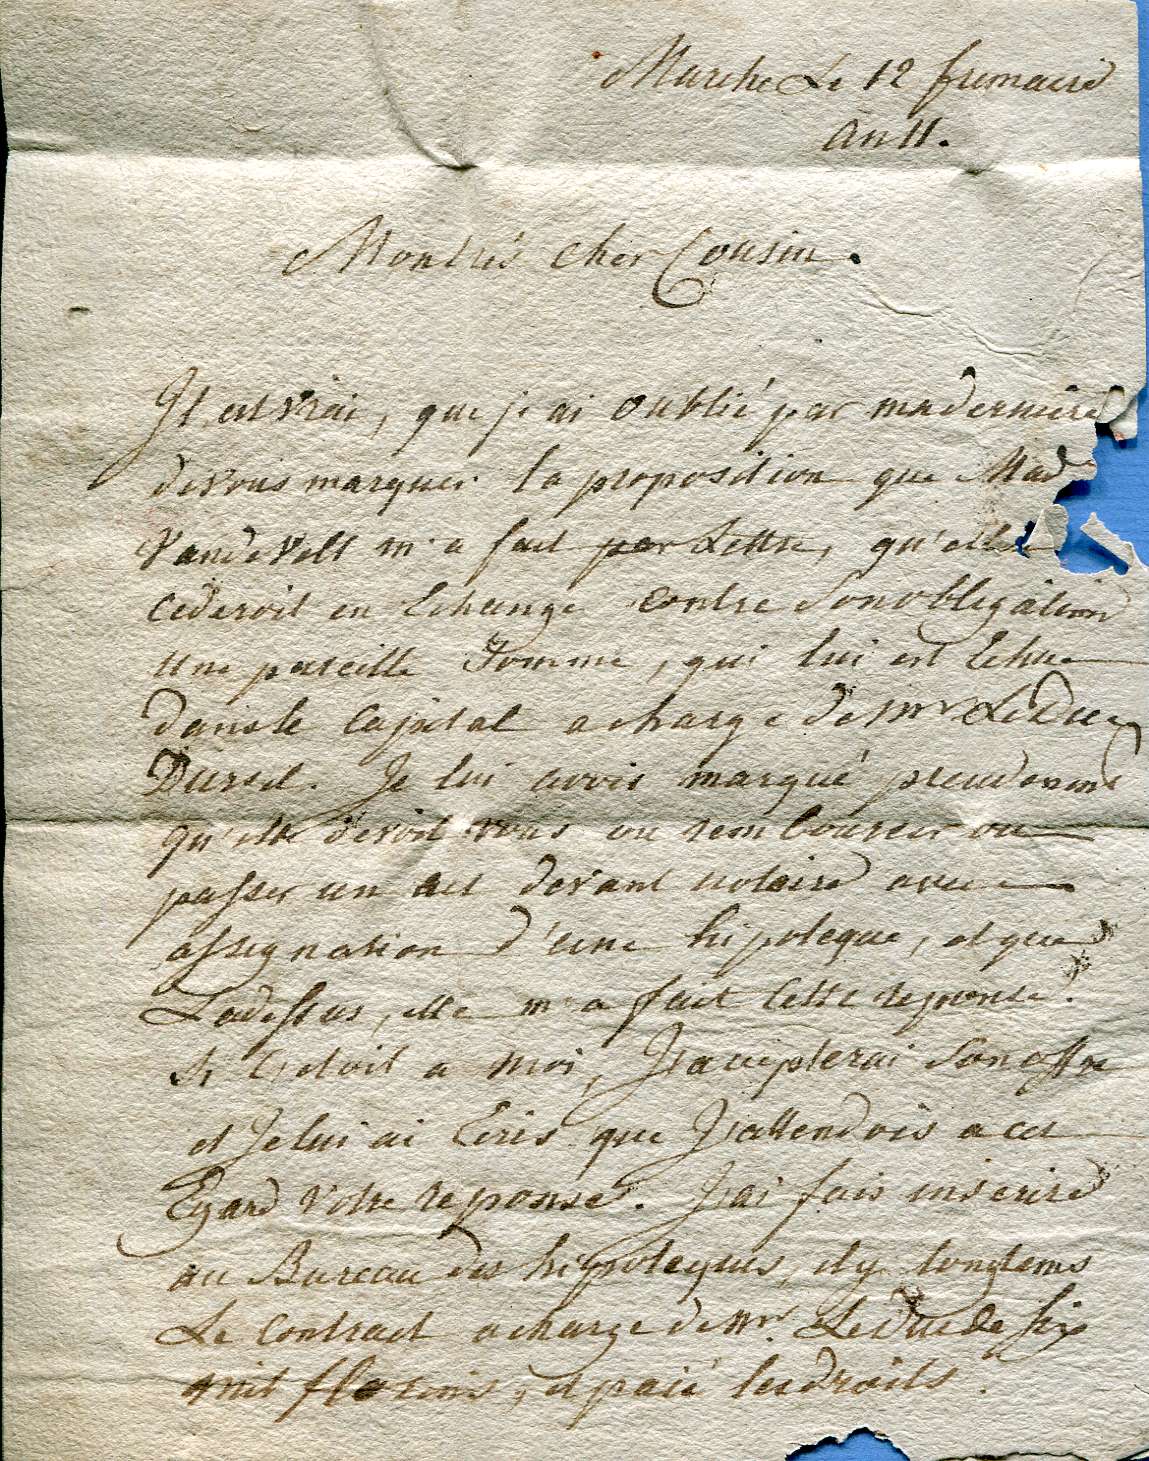 Marche Le 12 frimaire
An 11.
Mon très cher Cousin.
Il est vrai, que j'ai oublié par ma derniere
de vous marquer la proposition que Mad
Vandevelt m'a fait par Lettre, qu'elle
cederoit en Echange contre son obligation
une pareille somme, qui lui est Echue
dans le Capital a charge de Mr Le Duc
Dursel. Je lui avois marqué
qu'elle devoit vous ou rembourser ou
passer un act devant notaire avec
assignation d'une hipoteque, et que
Ladessus, elle m'a fait cette reponse.
Si C'etoit a moi, J'accepterai son offre
et Je lui ai Ecris que J'attendois a cet
Egard votre reponse. J'ai fais inscrire
au Bureau des hipoteques, il y longtems
Le Contract a charge de Mr. Le Duc de six
mil florins, et paié les droits.